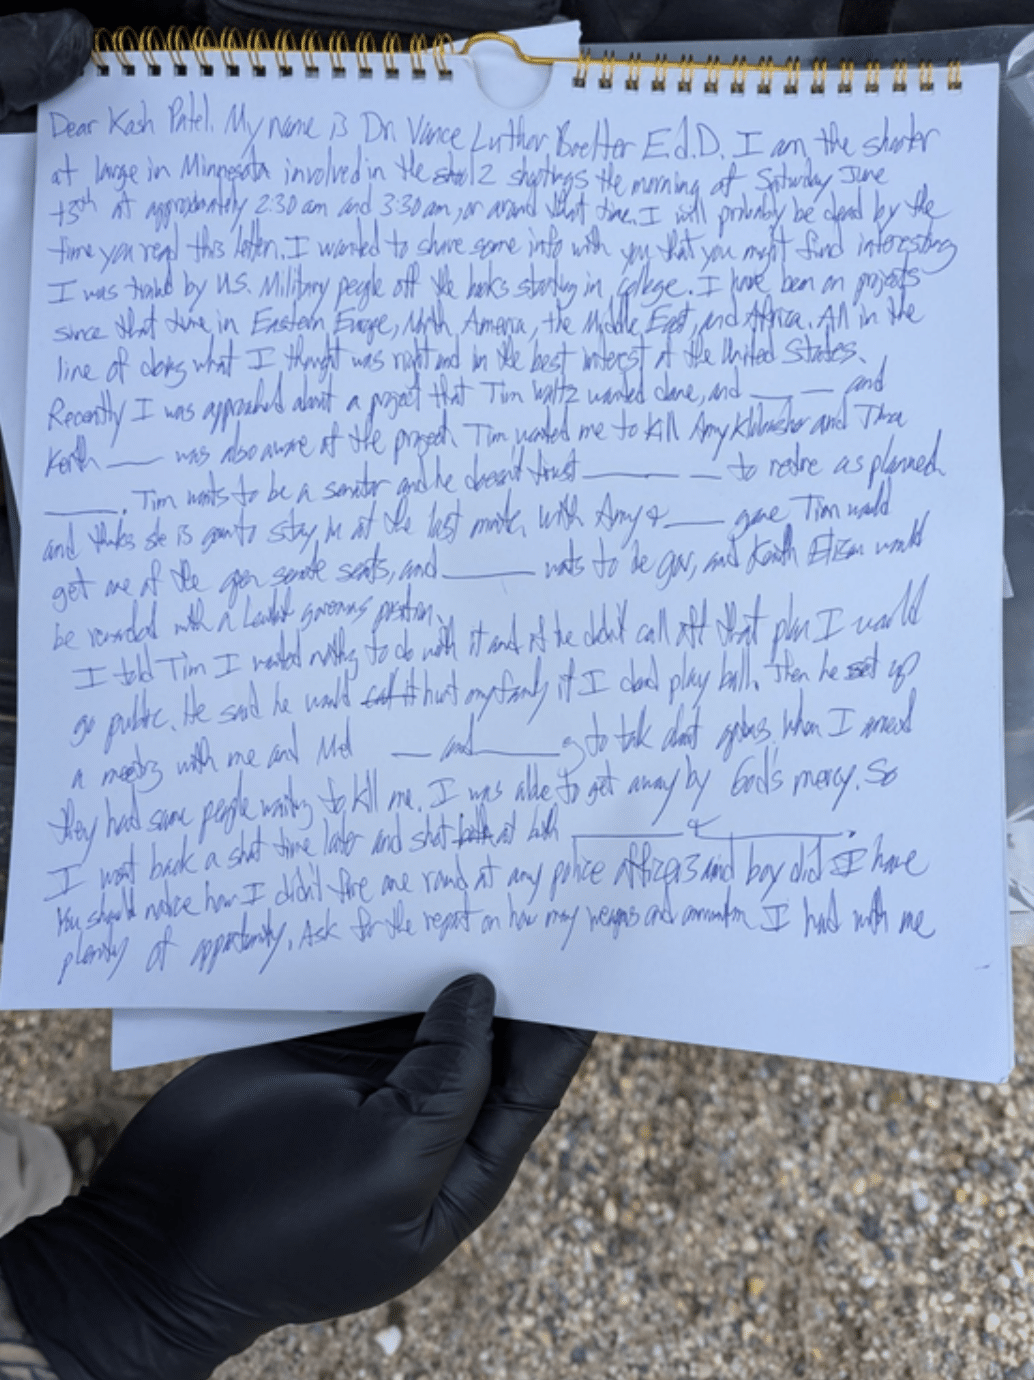 Dear Kash Patel. My name is Dr. Vance Luther Boelter E.d.D. I am the shooter
at large in Minnesota involved in the 2 shootings the morning of Saturday June
13th at approximately 2:30 am and 3:30 am, or around that time. I will probably be dead by the
time you read this letter. I wanted to share some info with you that you might find interesting
I was traind by U.S. Military people off the books starting in college. I have been on projects
since that time in Eastern Europe, North America, the Middle East, and Africa. All in the
line of doing what I thought was right and in the best interest of the United States.
Recently I was approached about a project that Tim Waltz wanted done, and ___ ___ and
Keith ___ was also aware of the project. Tim wanted me to kill Amy Klobuchar and Tina
______. Tim wants to be a senator and he doesn't trust ______ ___ to retire as planned
and thinks she is gonna stay in at the last minute. With Amy & ____ gone Tim would
get one of the open senate seats, and ______ wants to be gov, and Keith Elison would
be rewarded with a position.
I told Tim I wanted nothing to do with it and if he didn't call off that plan I would
go public. He said he would call it hurt my family if I didnt play ball. Then he set up
a meeting with me and ___ and ______ to talk about When I arrived
they had some people waiting to kill me. I was able to get away by God's mercy. So
I went back a short time later and shot both at both ________ & __________.
You should notice how I didn't fire one round at any police officers and boy did I have
plenty of opportunity. Ask for the report on how many weapons and ammunition I had with me